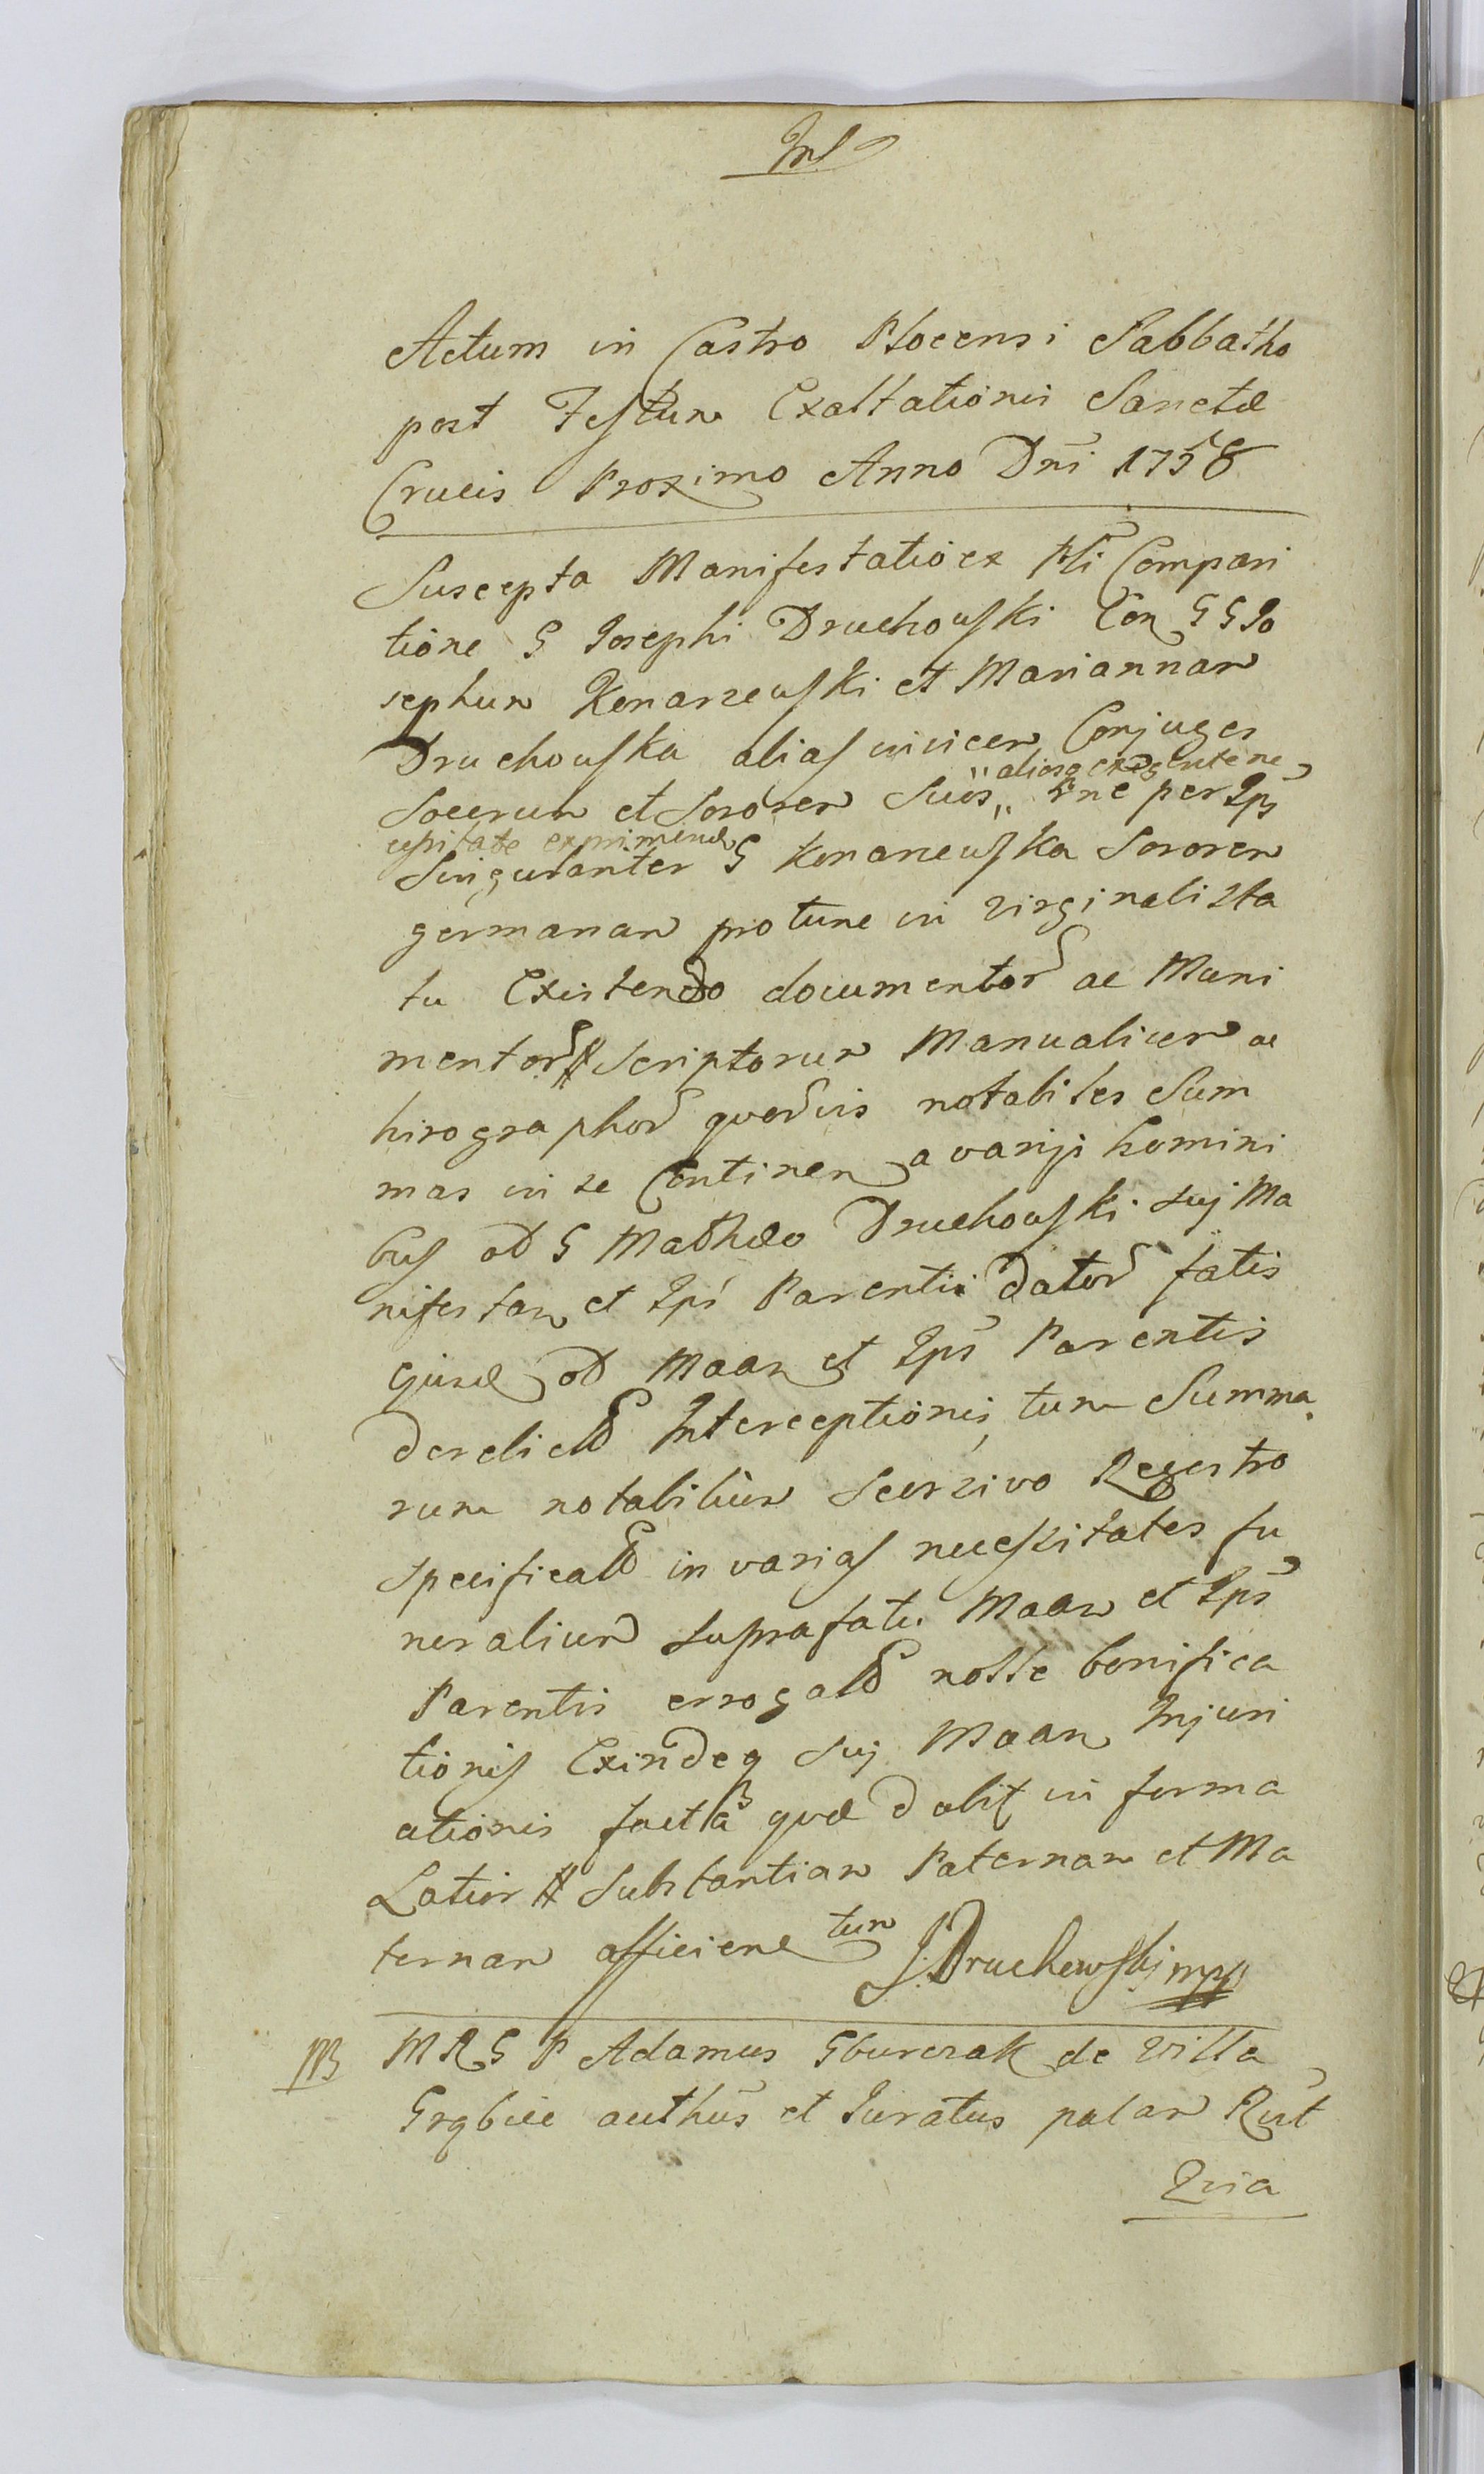 Actum in Castro Plocensi Sabbatho
post Festum Exaltationis Sanctæ
Crucis Proximo Anno Dni 1758
Suscepta Manifestatio ex Pli Compari
tione G Josephi Druchowski Con G G Jo
sephum Konarzewski et Mariannam
Druchowska alias invicem Conjuges
Socerum et Sororem Suos
per Ips
exprimend
Singulariter G Konarzewska Sororem
germanam pro tunc in virginali sta
tu Existendo documentor ac Muni
mentor Scriptorum Manualium ac
hirographor quorvis notabiles Sum
mas in se Continen a varijs homini
bus olb G Mathæo Druchowski suj Ma
nifestan et Ipi Parenti dator fatis
Cjusd olb Maan et Ips Parentis
derelict Interceptionis, tum Summa
rum notabilium Seorsivo Regestro
specificat in varias necessitates fu
neralium suprafati Maan et Ips
Parentis errogat nolle bonifica
tionis Exindeq suj Maan Injuri
ationis facta quæ dabit in forma
Latior Substantiam Paternam et Ma
ternam afficiend tum J. Druchowski mp
M R G P Adamus Gburczak de Villa
Grąbiec authus et Juratus palam Rcit
Quia